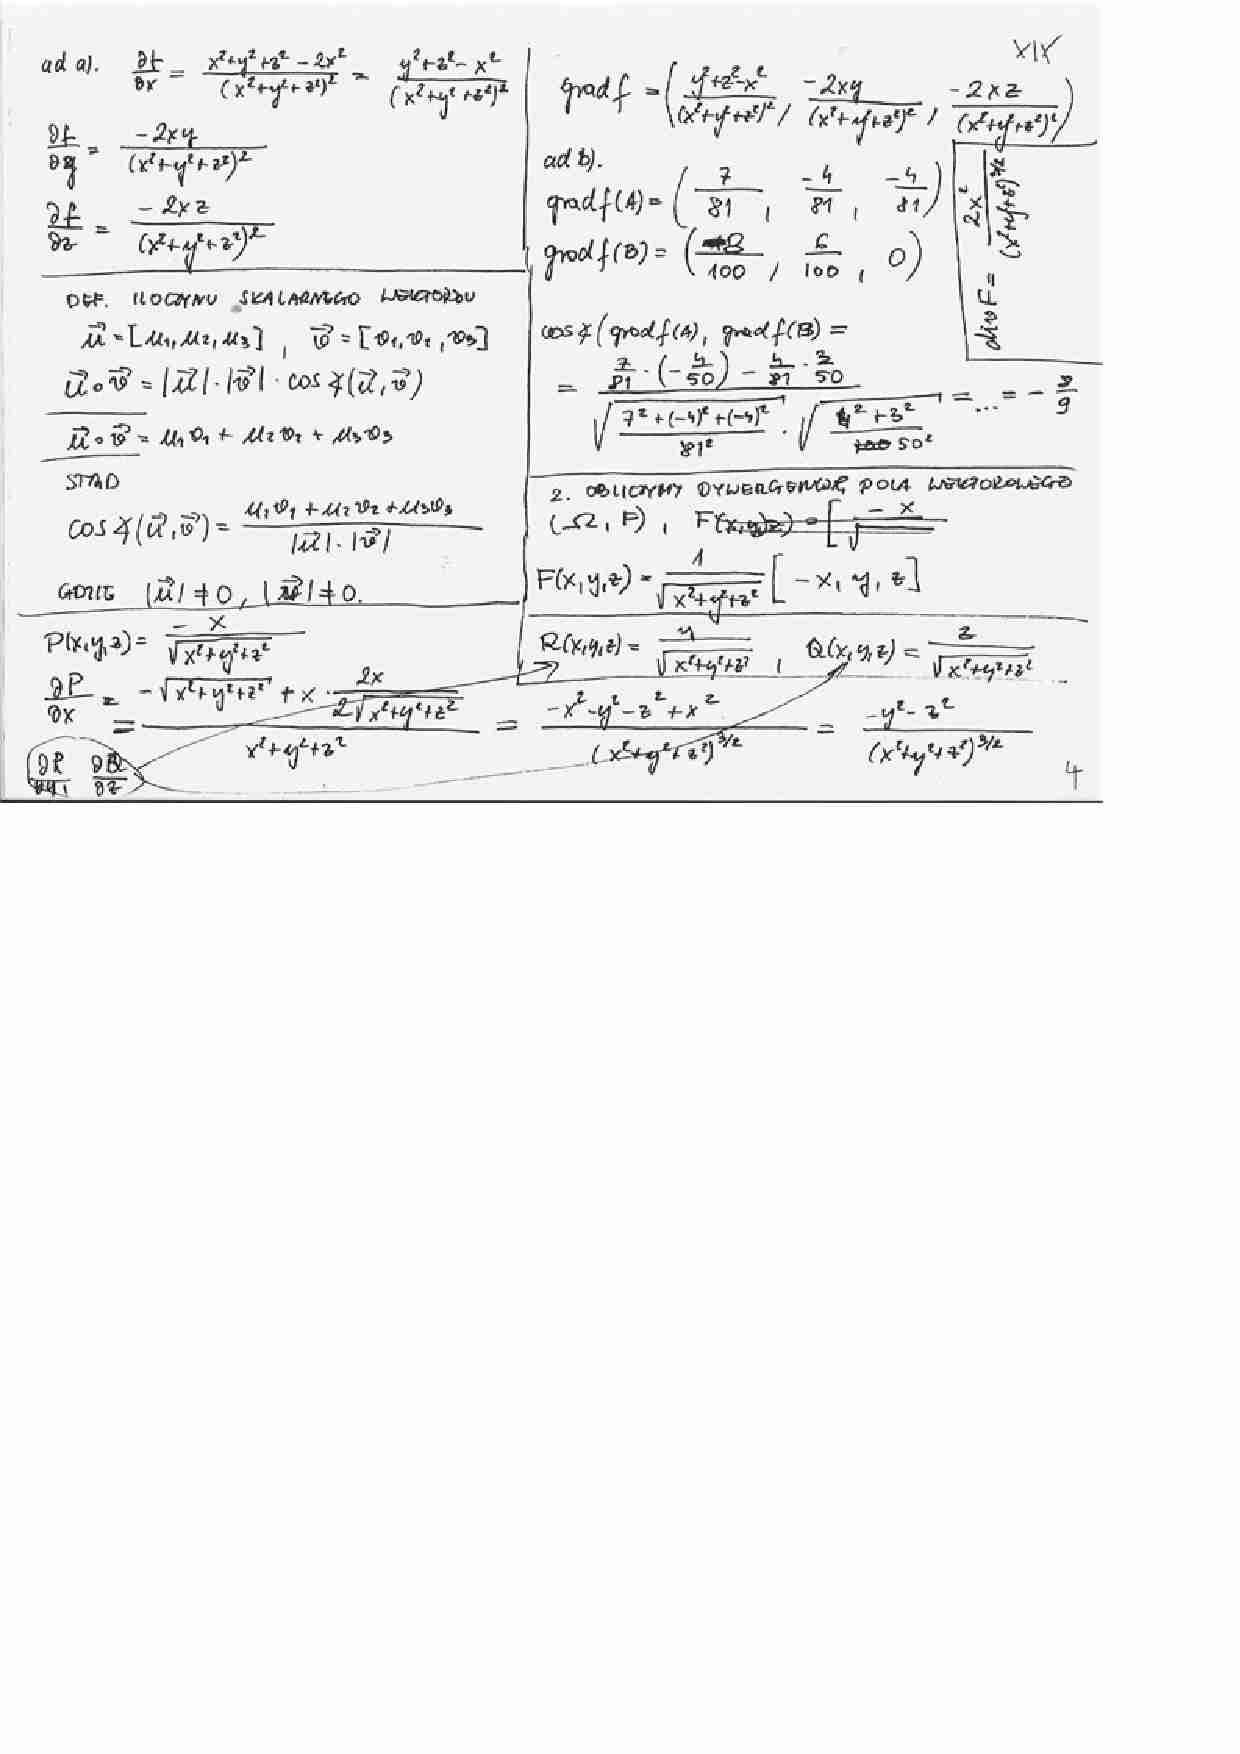 XIX
ad a). ∂f/∂x = (x²+y²+z²-2x²)/(x²+y²+z²)² = (y²+z²-x²)/(x²+y²+z²)²
∂f/∂y = -2xy/(x²+y²+z²)²
∂f/∂z = -2xz/(x²+y²+z²)²
DEF. ILOCZYNU SKALARNEGO WEKTORÓW
u⃗ = [u₁, u₂, u₃] , v⃗ = [v₁, v₂, v₃]
u⃗ ∘ v⃗ = |u⃗| · |v⃗| · cos ∢(u⃗, v⃗)
u⃗ ∘ v⃗ = u₁v₁ + u₂v₂ + u₃v₃
STĄD
cos ∢(u⃗, v⃗) = (u₁v₁ + u₂v₂ + u₃v₃)/(|u⃗| · |v⃗|)
GDZIE |u⃗| ≠ 0, |v⃗| ≠ 0.
grad f = ((y²+z²-x²)/(x²+y²+z²)², -2xy/(x²+y²+z²)², -2xz/(x²+y²+z²)²)
ad b).
grad f(A) = (7/81, -4/81, -4/81)
grad f(B) = (-8/100, 6/100, 0)
div F = 2x²/(x²+y²+z²)^(3/2)
cos ∢(grad f(A), grad f(B) =
= (7/81 · (-4/50) - 4/81 · 3/50)/(√((7²+(-4)²+(-4)²)/81²) · √((4²+3²)/50²)) = ... = -8/9
2. OBLICZYMY DYWERGENCJĘ POLA WEKTOROWEGO
(Ω, F) , F(x,y,z) = [-x/√
F(x,y,z) = 1/√(x²+y²+z²) [-x, y, z]
P(x,y,z) = -x/√(x²+y²+z²)
R(x,y,z) = y/√(x²+y²+z²) , Q(x,y,z) = z/√(x²+y²+z²)
∂P/∂x = = (-√(x²+y²+z²) + x · 2x/(2√(x²+y²+z²)))/(x²+y²+z²) = (-x²-y²-z²+x²)/(x²+y²+z²)^(3/2) = (-y²-z²)/(x²+y²+z²)^(3/2)
∂R/∂y, ∂Q/∂z
4